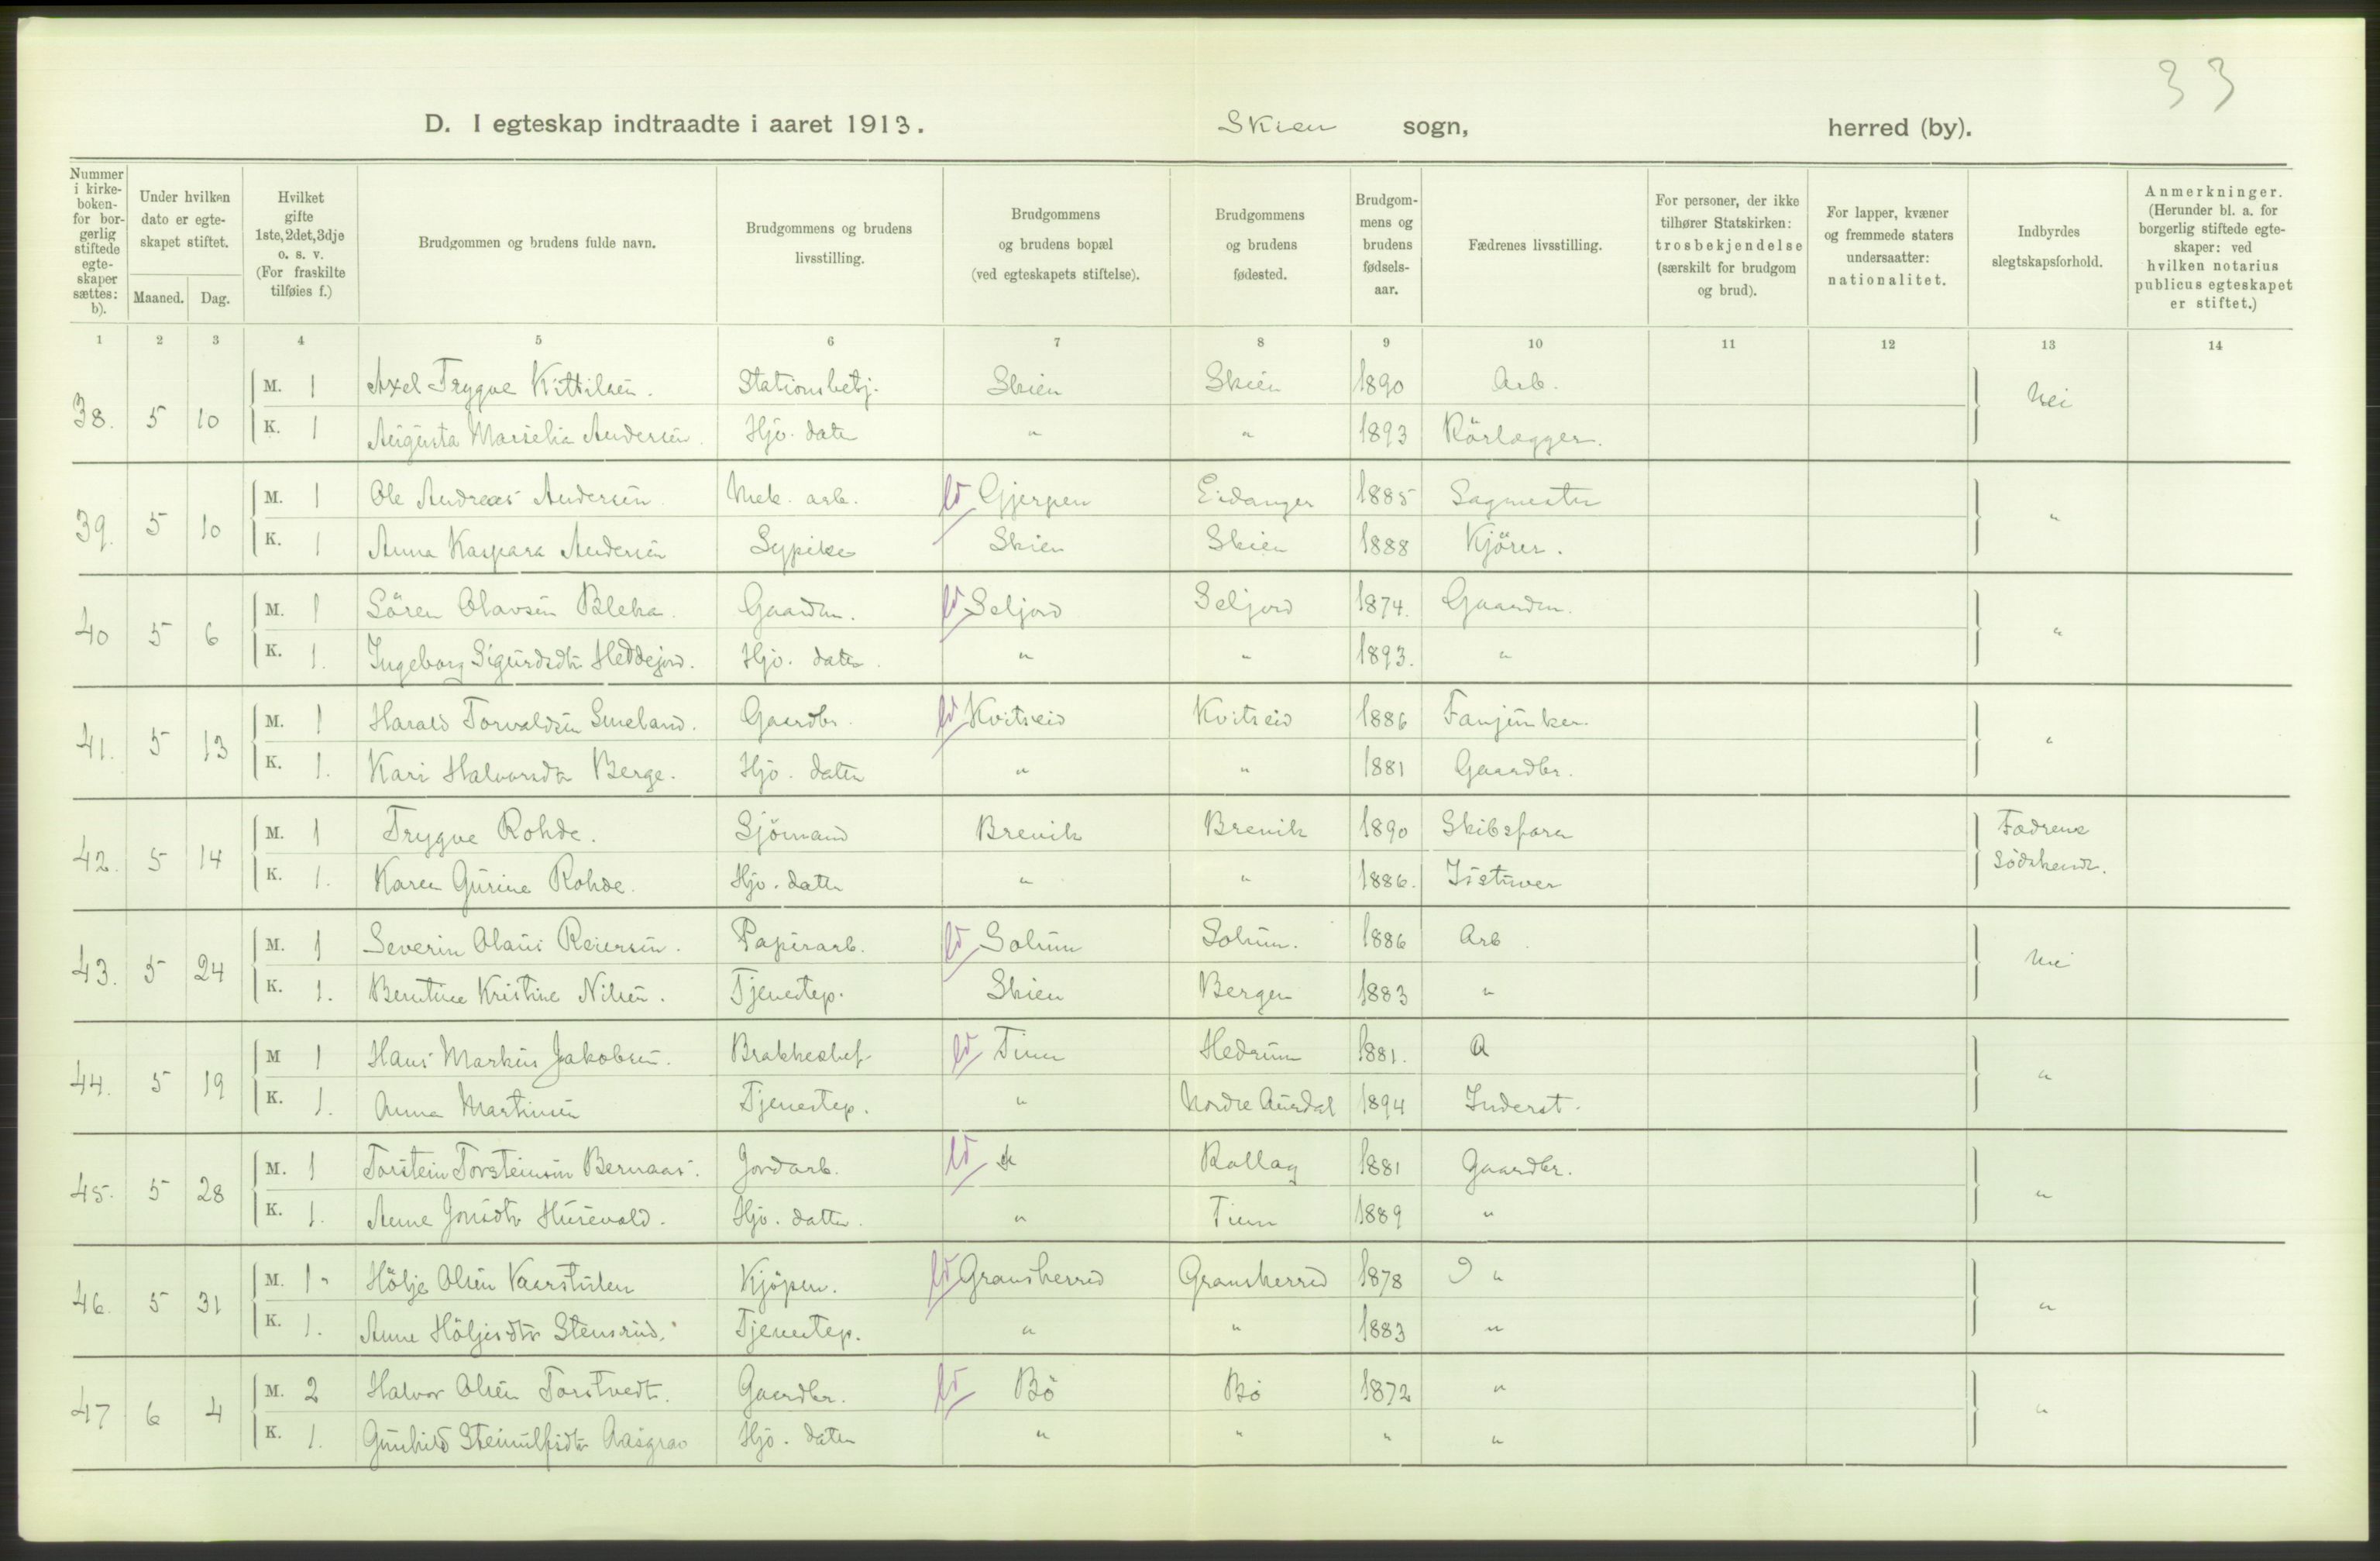 33
D. I egteskap indtraadte i aaret 1913. Skien sogn, herred (by).
Nummer i kirke-boken- for bor-gerlig stiftede egte-skaper sættes: b).
Under hvilken dato er egte-skapet stiftet.
Maaned. Dag.
Hvilket gifte 1ste, 2det, 3dje o. s. v. (For fraskilte tilføies f.)
Brudgommen og brudens fulde navn.
Brudgommens og brudens livsstilling.
Brudgommens og brudens bopæl (ved egteskapets stiftelse).
Brudgommens og brudens fødested.
Brudgom-mens og brudens fødsels-aar.
Fædrenes livsstilling.
For personer, der ikke tilhører Statskirken: trosbekjendelse (særskilt for brudgom og brud).
For lapper, kvæner og fremmede staters undersaatter: nationalitet.
Indbyrdes slegtskapsforhold.
Anmerkninger. (Herunder bl. a. for borgerlig stiftede egte-skaper: ved hvilken notarius publicus egteskapet er stiftet.)
1 2 3 4 5 6 7 8 9 10 11 12 13 14
38. 5 10 M. 1 Axel Trygve Kittilsen. Stationsbetj. Skien Skien 1890 Arb. Nei
K. 1 Augusta Marselia Andersen. Hjv. datter " " 1893 Rörlægger.
39. 5 10 M. 1 Ole Andreas Andersen. Mek. arb. ld Gjerpen Eidanger 1885 Sagmester "
K. 1 Anna Kaspara Andersen Sypike Skien Skien 1888 Kjörer.
40 5 6 M. 1 Sören Olavsen Bleka. Gaardm. ld Seljord Seljord 1874. Gaardm. "
K. 1. Ingeborg Sigurdsdtr Heddejord. Hjv. datter. " " 1893. "
41. 5 13 M. 1 Harald Torvaldsen Smeland. Gaardbr. ld Kvitseid Kvitseid 1886 Fanjunker "
K. 1. Kari Halvorsdtr Berge. Hjv. datter " " 1881 Gaardbr.
42. 5 14 M. 1 Trygve Rohde. Sjömand Brevik Brevik 1890 Skibsförer Fædrene
K. 1. Karen Gurine Rohde. Hjv. datter " " 1886. Istuver Södskende.
43. 5 24 M. 1 Severin Olaus Reiersen. Papirarb. ld Solum Solum. 1886 Arb. Nei
K. 1. Berntine Kristine Nilsen. Tjenestep. Skien Bergen 1883 "
44. 5 19 M 1 Hans Markus Jakobsen. Brakkechef ld Tinn Hedrum 1881. A "
K. 1. Anna Martinsen Tjenestep. " Nordre Aurdal 1894 Inderst.
45. 5 28 M. 1 Torstein Torsteinsen Bernaas. Jordarb. ld " Rollag 1881 Gaardbr. "
K. 1. Anne Jonsdtr Husevold. Hjv. datter. " Tinn 1889 "
46. 5 31 M. 1 " Hölje Olsen Vaarstulen Kjöpm. ld Gransherred Gransherred 1878 " "
K. 1. Anne Höljesdtr Stensrud. Tjenestep. " " 1883 "
47 6 4 M. 2 Halvor Olsen Torstvedt. Gaardbr. ld Bö Bö 1872 " "
K. 1. Gunhild Steinulfsdtr Aasgrav Hjv. datter " " " "